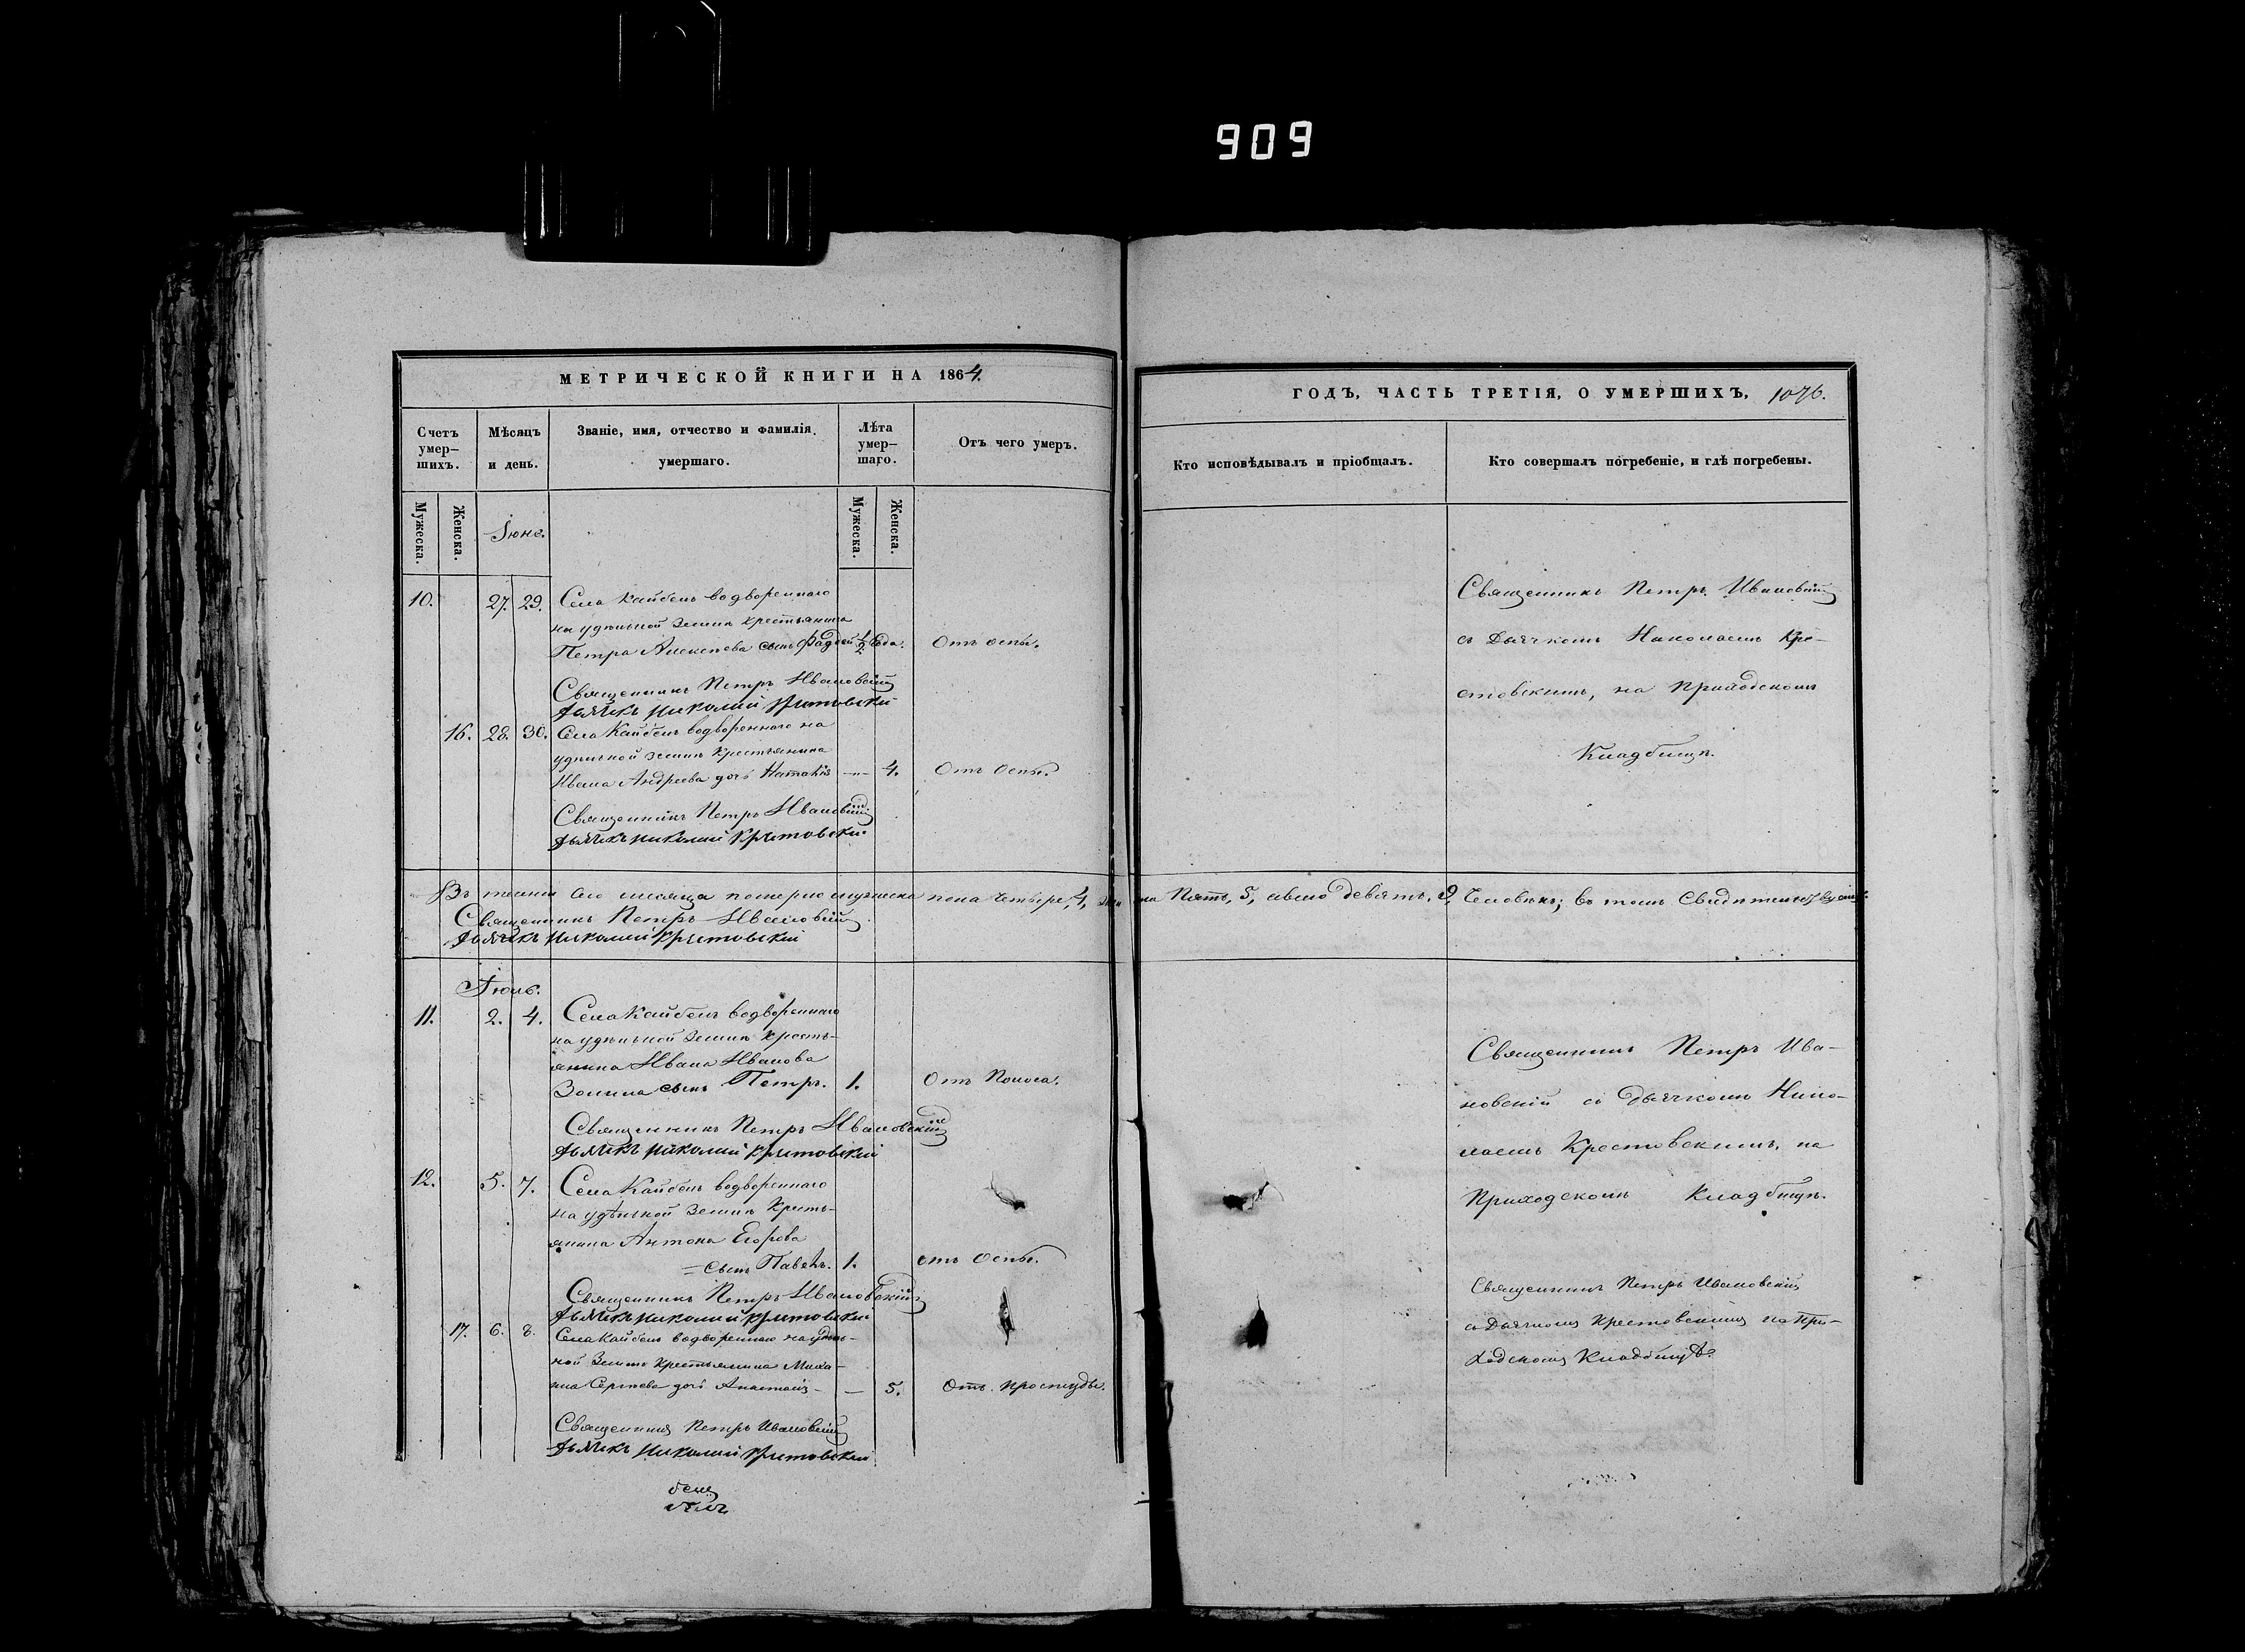 909
МЕТРИЧЕСКОЙ КНИГИ НА 1864.
Счетъ умер-шихъ.
Мѣсяцъ и день.
Званіе, имя, отчество и фамилія умершаго.
Лѣта умер-шаго.
Отъ чего умеръ.
Мужеска.
Женска.
Мужеска.
Женска.
Іюнь.
10. 27. 29. Села Кайбелъ водвореннаго
на удѣльной землѣ крестьянина
Петра Алексѣева сынъ Фадѣй 1/2 года. Отъ оспы.
Священникъ Петръ Ивановскій
Дьячекъ Николай Крестовскій
16. 28. 30. Села Кайбелъ водвореннаго на
удѣльной землѣ крестьянина
Ивана Андреева дочь Наталія — 4. Отъ Оспы.
Священникъ Петръ Ивановскій
Дьячекъ Николай Крестовскій
Въ теченіи сего мѣсяца померло мужеска пола четыре, 4,
Священникъ Петръ Ивановскій
Дьячекъ Николай Крестовскій
Іюль.
11. 2. 4. Села Кайбелъ водвореннаго
на удѣльной землѣ кресть-
янина Ивана Иванова
Золина сынъ Петръ. 1. Отъ Поноса.
Священникъ Петръ Ивановскій
Дьячекъ Николай Крестовскій
12. 5. 7. Села Кайбелъ водвореннаго
на удѣльной землѣ кресть-
янина Антона Егорова
сынъ Павелъ. 1. отъ Оспы.
Священникъ Петръ Ивановскій
Дьячекъ Николай Крестовскій
17. 6. 8. Села Кайбелъ водвореннаго на удѣль-
ной землѣ крестьянина Миха-
ила Сергѣева дочь Анастасія — 5. Отъ простуды.
Священникъ Петръ Ивановскій
Дьячекъ Николай Крестовскій
ГОДЪ, ЧАСТЬ ТРЕТІЯ, О УМЕРШИХЪ, 1076.
Кто исповѣдывалъ и пріобщалъ.
Кто совершалъ погребеніе, и гдѣ погребены.
Священникъ Петръ Ивановскій
съ Дьячкомъ Николаемъ Кре-
стовскимъ, на приходскомъ
Кладбищѣ.
Пять, 5, обоего девять, 9, Человѣкъ; въ томъ Свидѣтельствуемъ
Священникъ Петръ Ива-
новскій съ Дьячкомъ Нико-
лаемъ Крестовскимъ, на
Приходскомъ Кладбищѣ.
Священникъ Петръ Ивановскій
съ Дьячкомъ Крестовскимъ на При-
ходскомъ Кладбищѣ.